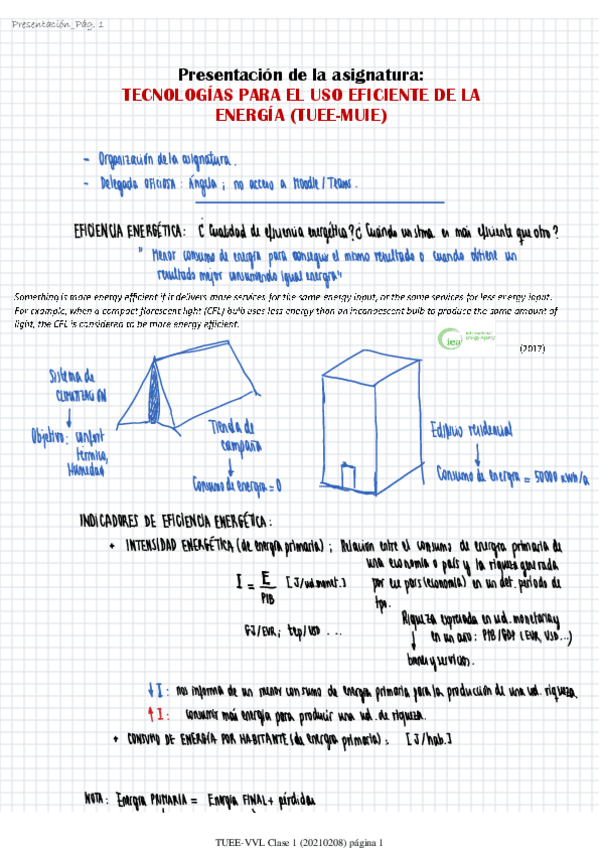 Presentación_Pág. 1
Presentación de la asignatura:
TECNOLOGÍAS PARA EL USO EFICIENTE DE LA
ENERGÍA (TUEE-MUIE)
- Organización de la asignatura.
- Delegada oficiosa: Ángela; no acceso a Moodle/Teams.
EFICIENCIA ENERGÉTICA: ¿Cualidad de eficiencia energética? ¿Cuándo un stma. es más eficiente que otro?
"Menor consumo de energía para conseguir el mismo resultado o cuando obtiene un
resultado mejor consumiendo igual energía"
Something is more energy efficient if it delivers more services for the same energy input, or the same services for less energy input.
For example, when a compact florescent light (CFL) bulb uses less energy than an incandescent bulb to produce the same amount of
light, the CFL is considered to be more energy efficient.
iea International
Energy Agency
(2017)
Sistema de
CLIMATIZACIÓN
Objetivo: confort
térmico,
Humedad
Tienda de
campaña
Consumo de energía = 0
Edificio residencial
Consumo de energía = 50000 kWh/a
INDICADORES DE EFICIENCIA ENERGÉTICA:
+ INTENSIDAD ENERGÉTICA (de energía primaria); Relación entre el consumo de energía primaria de
una economía o país y la riqueza generada
por ese país (economía) en un det. período de
tpo.
I = E/PIB [J/ud.monet.]
GJ/EUR; tep/USD ...
Riqueza expresada en ud. monetarias y
en un año: PIB/GDP (EUR, USD...)
bienes y servicios.
↓I: nos informa de un menor consumo de energía primaria para la producción de una ud. riqueza.
↑I: consumir más energía para producir una ud. de riqueza.
+ CONSUMO DE ENERGÍA POR HABITANTE (de energía primaria): [J/hab.]
NOTA: Energía PRIMARIA = Energía FINAL + pérdidas
TUEE-VVL Clase 1 (20210208) página 1